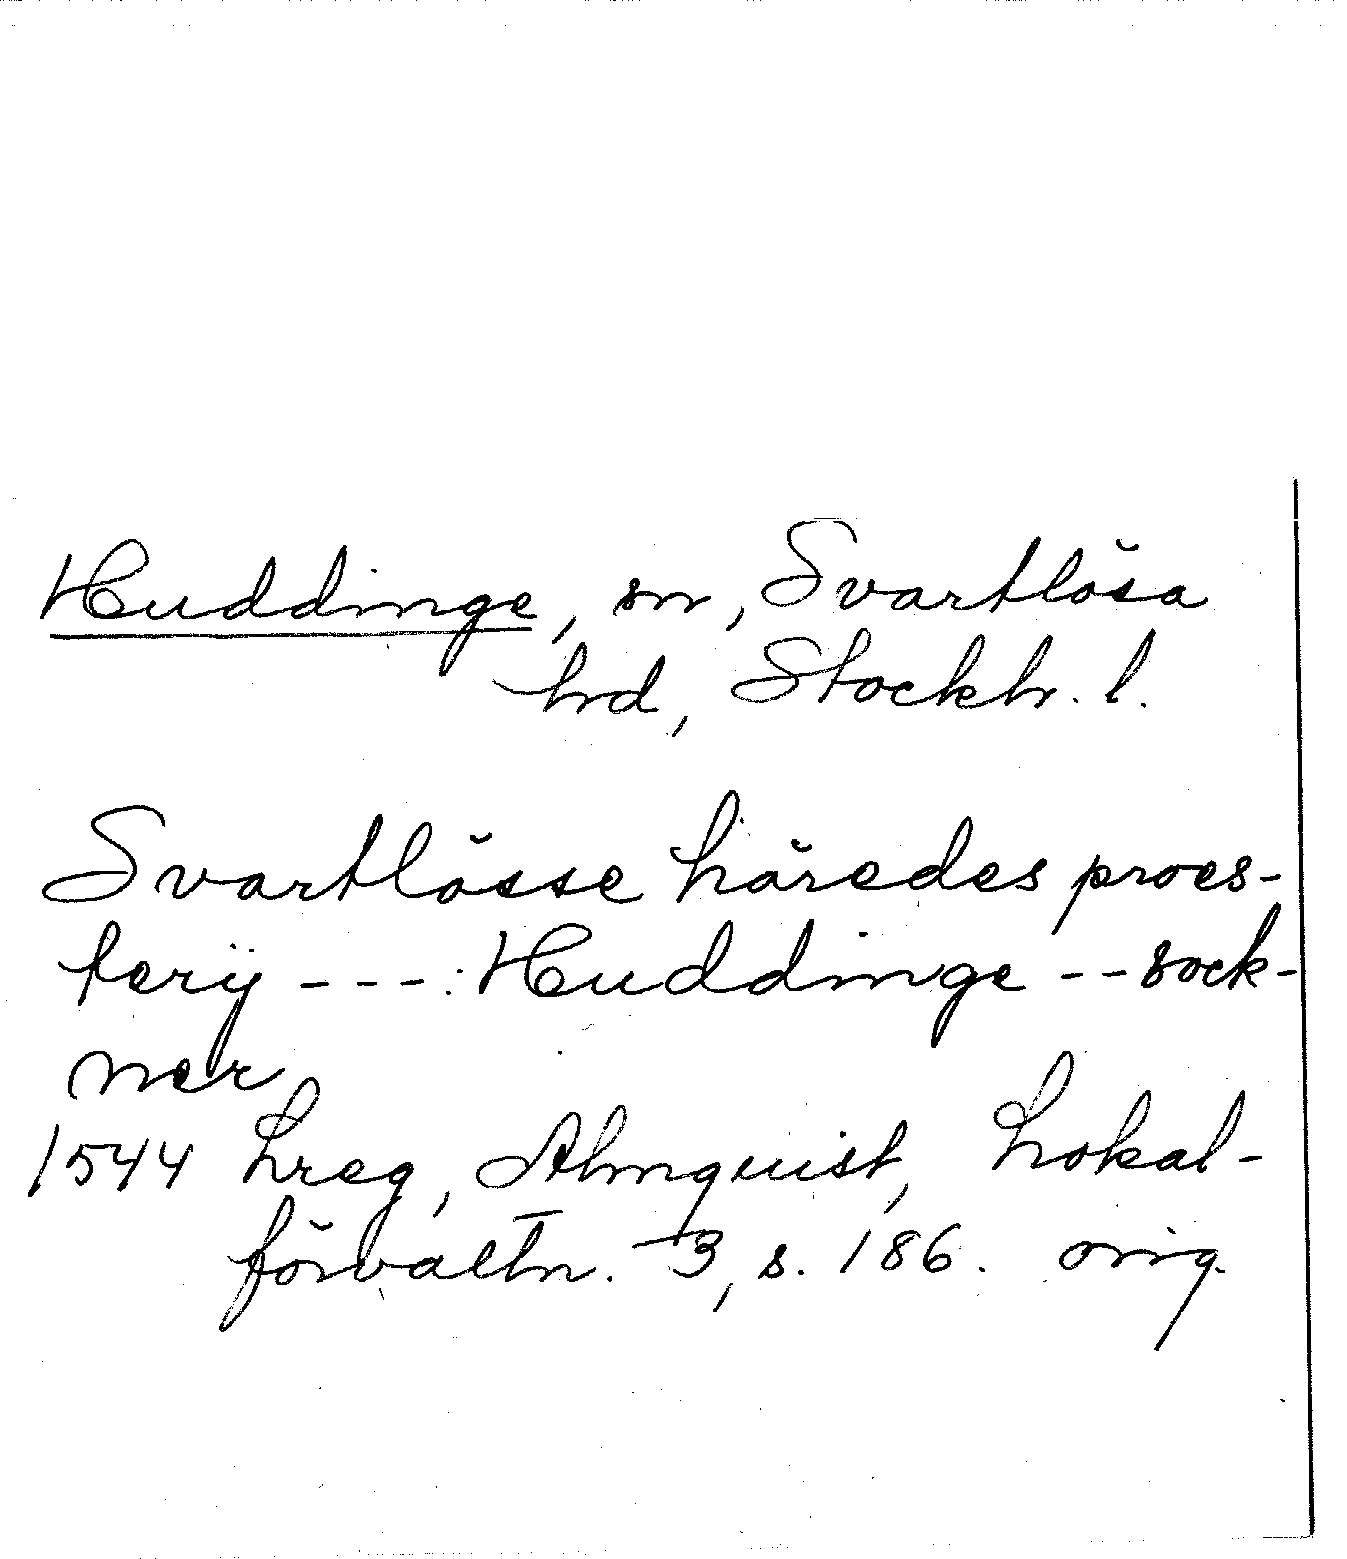 Huddinge, sn, Svartlösa
hd, Stockh. l.
Svartlösse häredes proes-
terij ---: Huddinge -- sock-
ner
1544 Lreg, Almquist, Lokal-
förvaltn. 3, s. 186. orig.